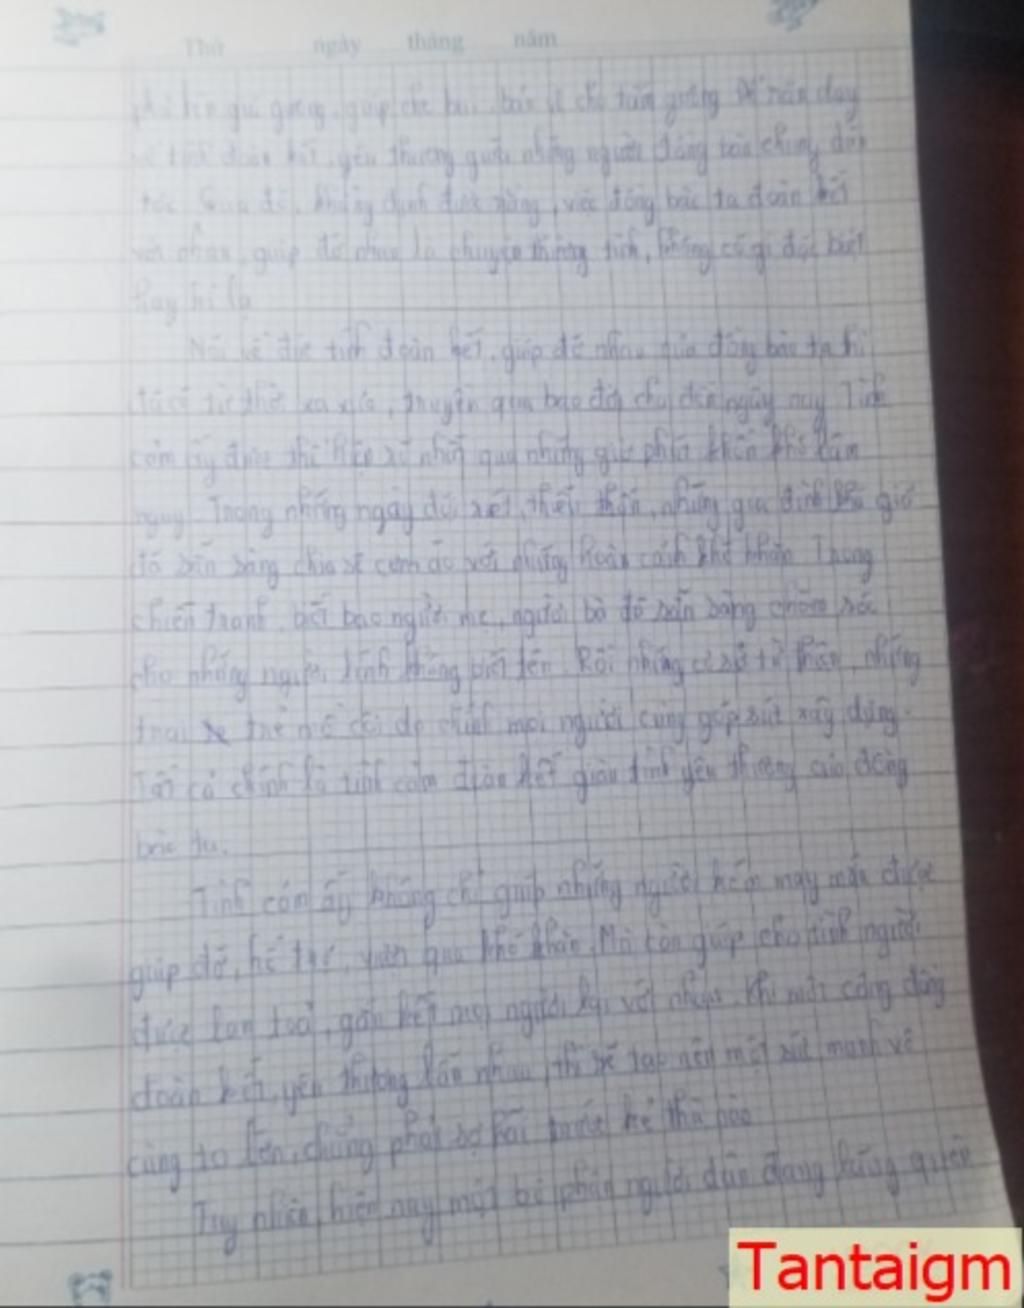 Thứ ngày tháng năm
phủ lên giá gương, giúp che bụi, bảo vệ cho tấm gương để răn dạy
về tinh thần đoàn kết, yêu thương giữa những người đồng bào chung dân
tộc. Qua đó, khẳng định được rằng, việc đồng bào ta đoàn kết
với nhau, giúp đỡ nhau là chuyện thường tình, không có gì đặc biệt
hay kì lạ
Nói về đức tính đoàn kết, giúp đỡ nhau của đồng bào ta thì
đã có từ thời xa xưa, truyền qua bao đời cho đến ngày nay. Tình
cảm ấy được thể hiện rõ nhất qua những giây phút khốn khó lâm
nguy. Trong những ngày đói rét, thiếu thốn, những gia đình khá giả
đã sẵn sàng chia sẻ cơm áo với những hoàn cảnh khó khăn. Trong
chiến tranh, biết bao người mẹ, người bà đã sẵn sàng chăm sóc
cho những người lính không biết tên. Rồi những cơ sở từ thiện, những
trại trẻ mồ côi do chính mọi người cùng góp sức xây dựng.
Tất cả chính là tình cảm đoàn kết giàu tình yêu thương của đồng
bào ta.
Tình cảm ấy không chỉ giúp những người kém may mắn được
giúp đỡ, hỗ trợ, vượt qua khó khăn. Mà còn giúp cho tình người
được lan toả, gắn kết mọi người lại với nhau. Khi một cộng đồng
đoàn kết, yêu thương lẫn nhau, thì sẽ tạo nên một sức mạnh vô
cùng to lớn, chẳng phải sợ hãi trước kẻ thù nào
Tuy nhiên, hiện nay một bộ phận người dân đang
Tantaigm